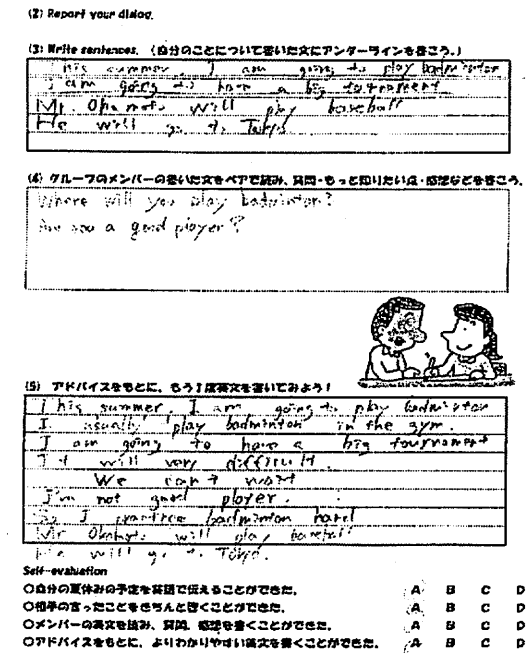 (2) Report your dialog.
(3) Write sentences. (自分のことについて書いた文にアンダーラインを書こう。)
This summer, I am going to play badminton
I am going to have a big tournament
Mr. Okamoto will play baseball
He will go to Tokyo
(4) グループのメンバーの書いた文をペアで読み、質問・もっと知りたい点・感想などを書こう。
Where will you play badminton?
Are you a good player?
(5) アドバイスをもとに、もう1度英文を書いてみよう!
This summer, I am going to play badminton
I usually play badminton in the gym.
I am going to have a big tournament
It will very difficult.
We can't wait
I'm not good player.
So I practice badminton hard
Mr. Okamoto will play baseball
He will go to Tokyo.
Self-evaluation
○自分の夏休みの予定を英語で伝えることができた。 A B C D
○相手の言ったことをきちんと聴くことができた。 A B C D
○メンバーの英文を読み、質問、感想を書くことができた。 A B C D
○アドバイスをもとに、よりわかりやすい英文を書くことができた。 A B C D